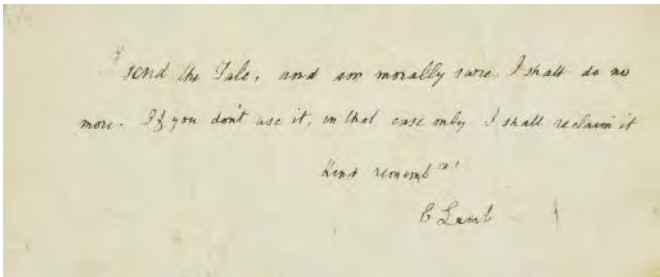 I send the Tale, and am morally sure I shall do no
more. If you don't use it, in that case only I shall reclaim it
Kind rememb^ces
C Lamb